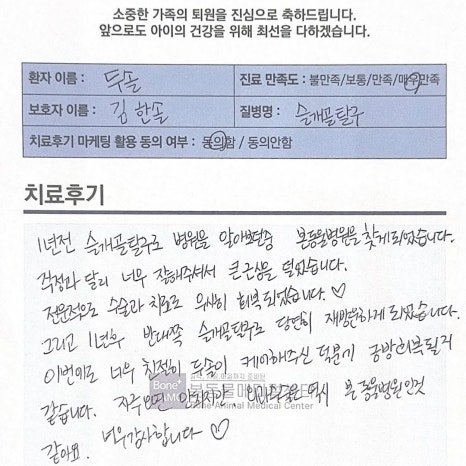 소중한 가족의 퇴원을 진심으로 축하드립니다.
앞으로도 아이의 건강을 위해 최선을 다하겠습니다.
환자 이름 : 두솔
진료 만족도 : 불만족/보통/만족/매우만족
보호자 이름 : 김한솔
질병명 : 슬개골탈구
치료후기 마케팅 활용 동의 여부 : 동의함 / 동의안함
치료후기
1년전 슬개골탈구로 병원을 알아보던중 본동물병원을 찾게되었습니다.
걱정과 달리 너무 잘해주셔서 큰 근심을 덜었습니다.
전문적으로 수술과 치료로 무사히 회복되었습니다. ♡
그리고 1년후 반대쪽 슬개골탈구로 당연히 재방문하게되었습니다.
이번에도 너무 친절히 두솔이 케어해주신 덕분에 금방회복될거
같습니다. 자주보면 안되지만, 역시 본동물병원인것
같아요. 너무감사합니다 ♡
Bone
AMC
본동물메디컬센터
Bone Animal Medical Center